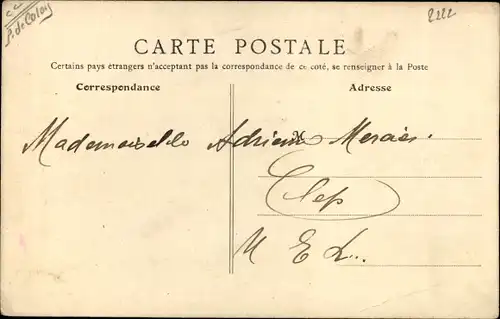 P. de Calais
2222
CARTE POSTALE
Certains pays étrangers n'acceptant pas la correspondance de ce coté, se renseigner à la Poste
Correspondance
Adresse
Mademoiselle
Clep